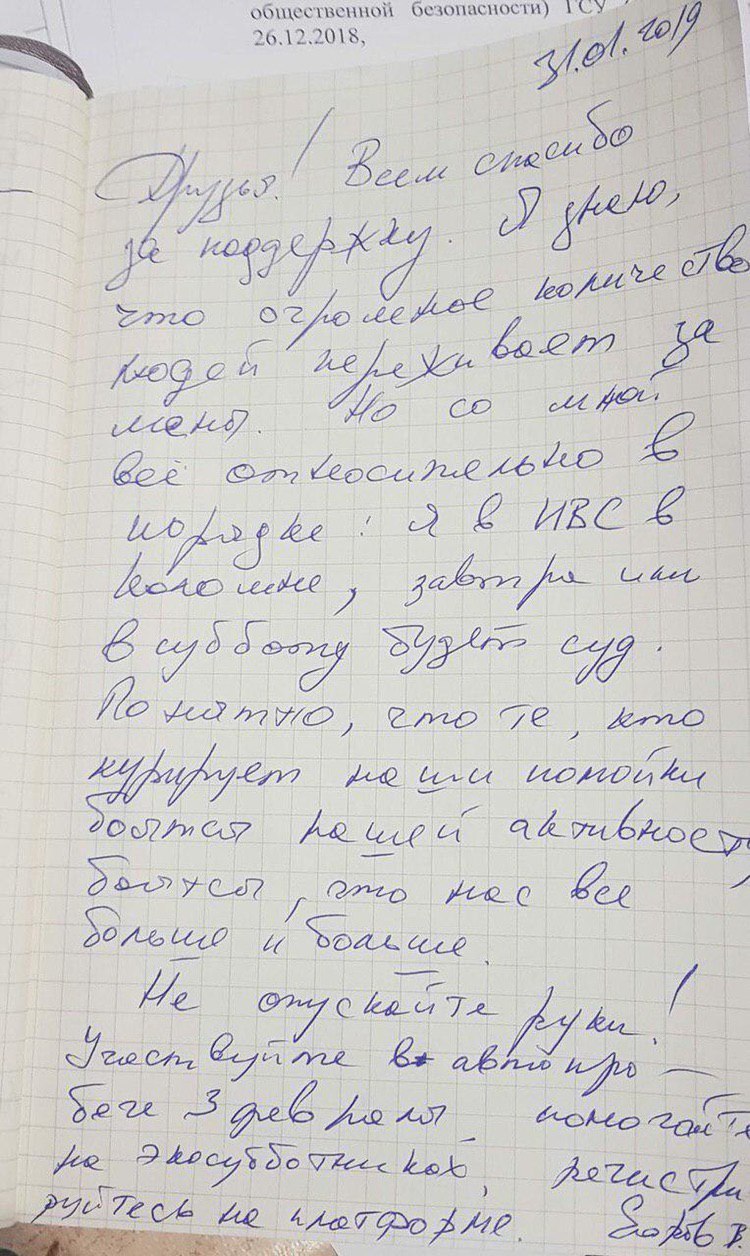 общественной безопасности) ГСУ
26.12.2018,
31.01.2019
Друзья! Всем спасибо
за поддержку. Я знаю,
что огромное количество
людей переживает за
меня. Но со мной
всё относительно в
порядке: я в ИВС в
Коломне, завтра или
в субботу будет суд.
Понятно, что те, кто
курирует наши помойки
боятся нашей активност
боятся, что нас все
больше и больше.
Не опускайте руки!
Участвуйте в автопро-
беге 3 февраля, помогайте
на экосубботниках, регистри
руйтесь на платформе. Егоров В.